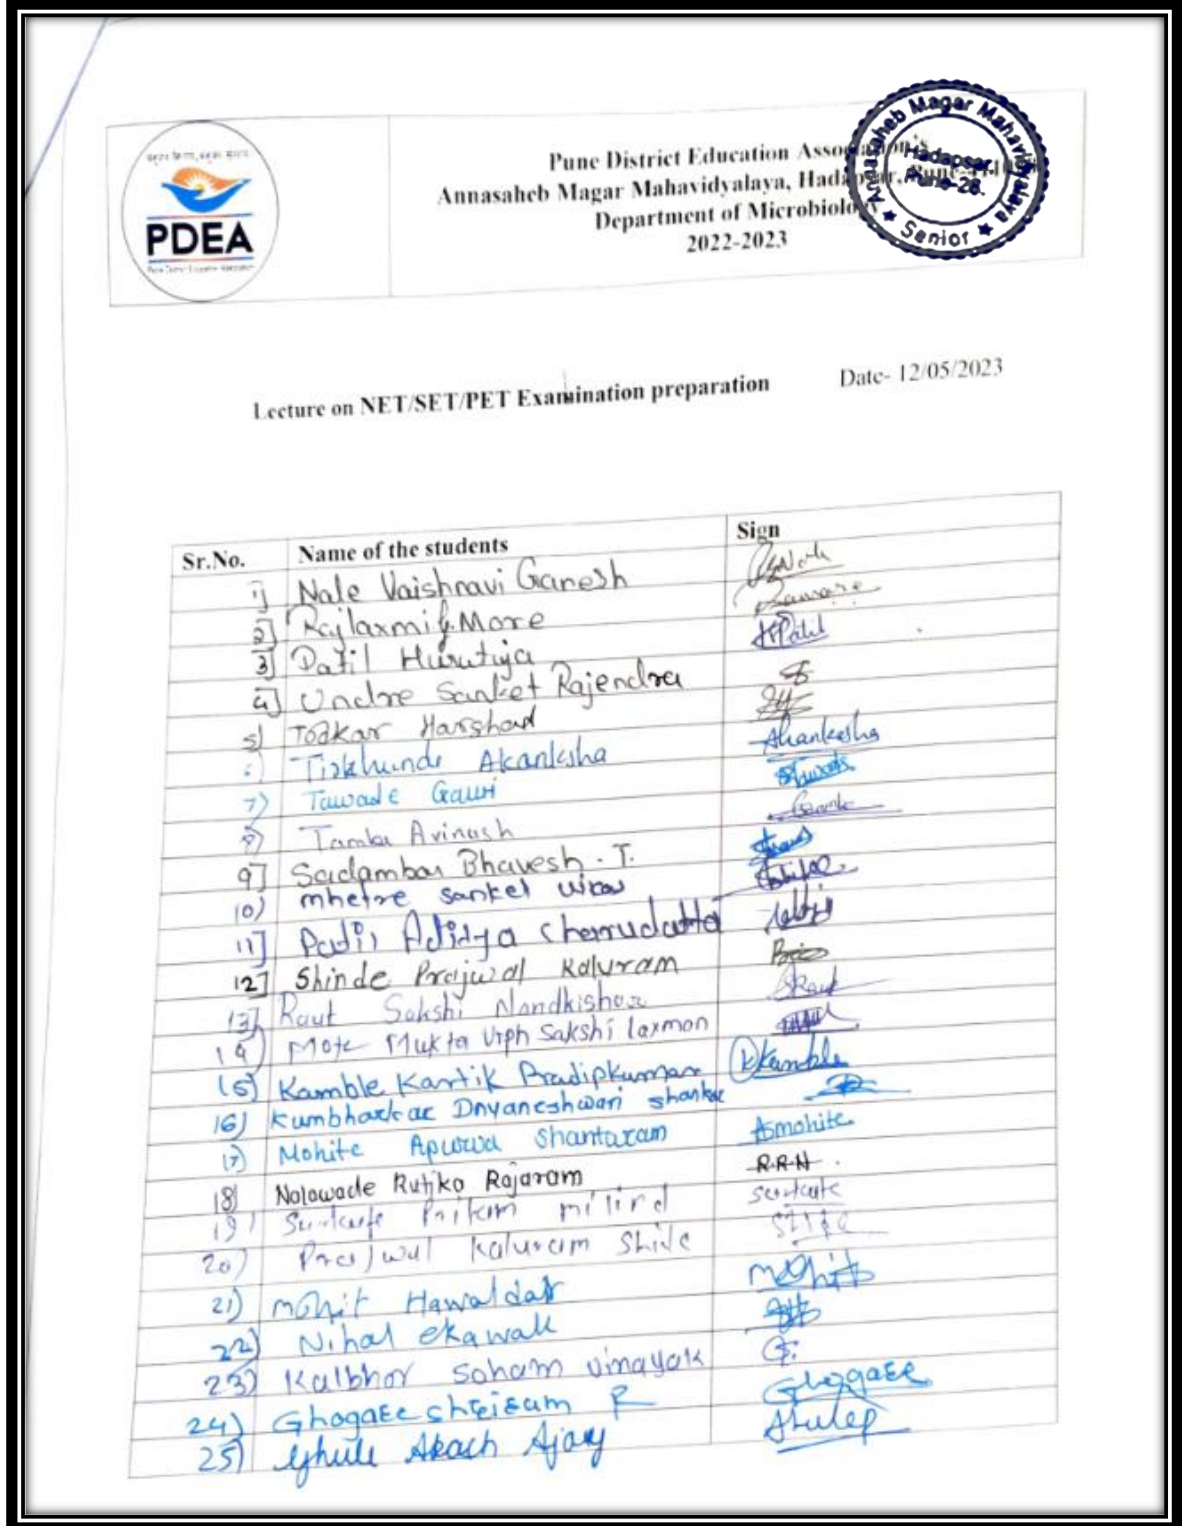 PDEA
Pune District Education Association's
Annasaheb Magar Mahavidyalaya, Hadapsar, Pune-
Department of Microbiology
2022-2023
Annasaheb Magar Mahavidyalaya
Hadapsar,
Pune-28.
★ Senior ★
Lecture on NET/SET/PET Examination preparation Date- 12/05/2023
Sr.No. Name of the students Sign
1] Nale Vaishnavi Ganesh
2] Rajlaxmi G. More
3] Patil Hurutuja HPatil
4] Undre Sanket Rajendra
5] Todkar Harshad
Tirkhunde Akanksha Akanksha
7) Tawade Gauri
8) Tambe Avinash
9] Sadambar Bhavesh . T.
10) mhetre sanket vikas
11] Patil Aditya Charudatta
12] Shinde Prajwal Kaluram
13] Raut Sakshi Nandkishor SRaut
14) Mote Mukta Urph Sakshi laxman
15) Kamble Kartik Pradipkumar kkamble
16) Kumbharkar Dnyaneshwari shankar
17) Mohite Apurva Shantaram Asmohite
18] Nalawade Rutika Rajaram R.R.N
19) milind
20) Prajwal Kaluram Shinde
21) mohit Hawaldar mohit
22) Nihal ekawale
23) Kalbhor Soham vinayak
24) Ghogare shreiram R Ghogare
25) Ghule Akash Ajay Ghulep